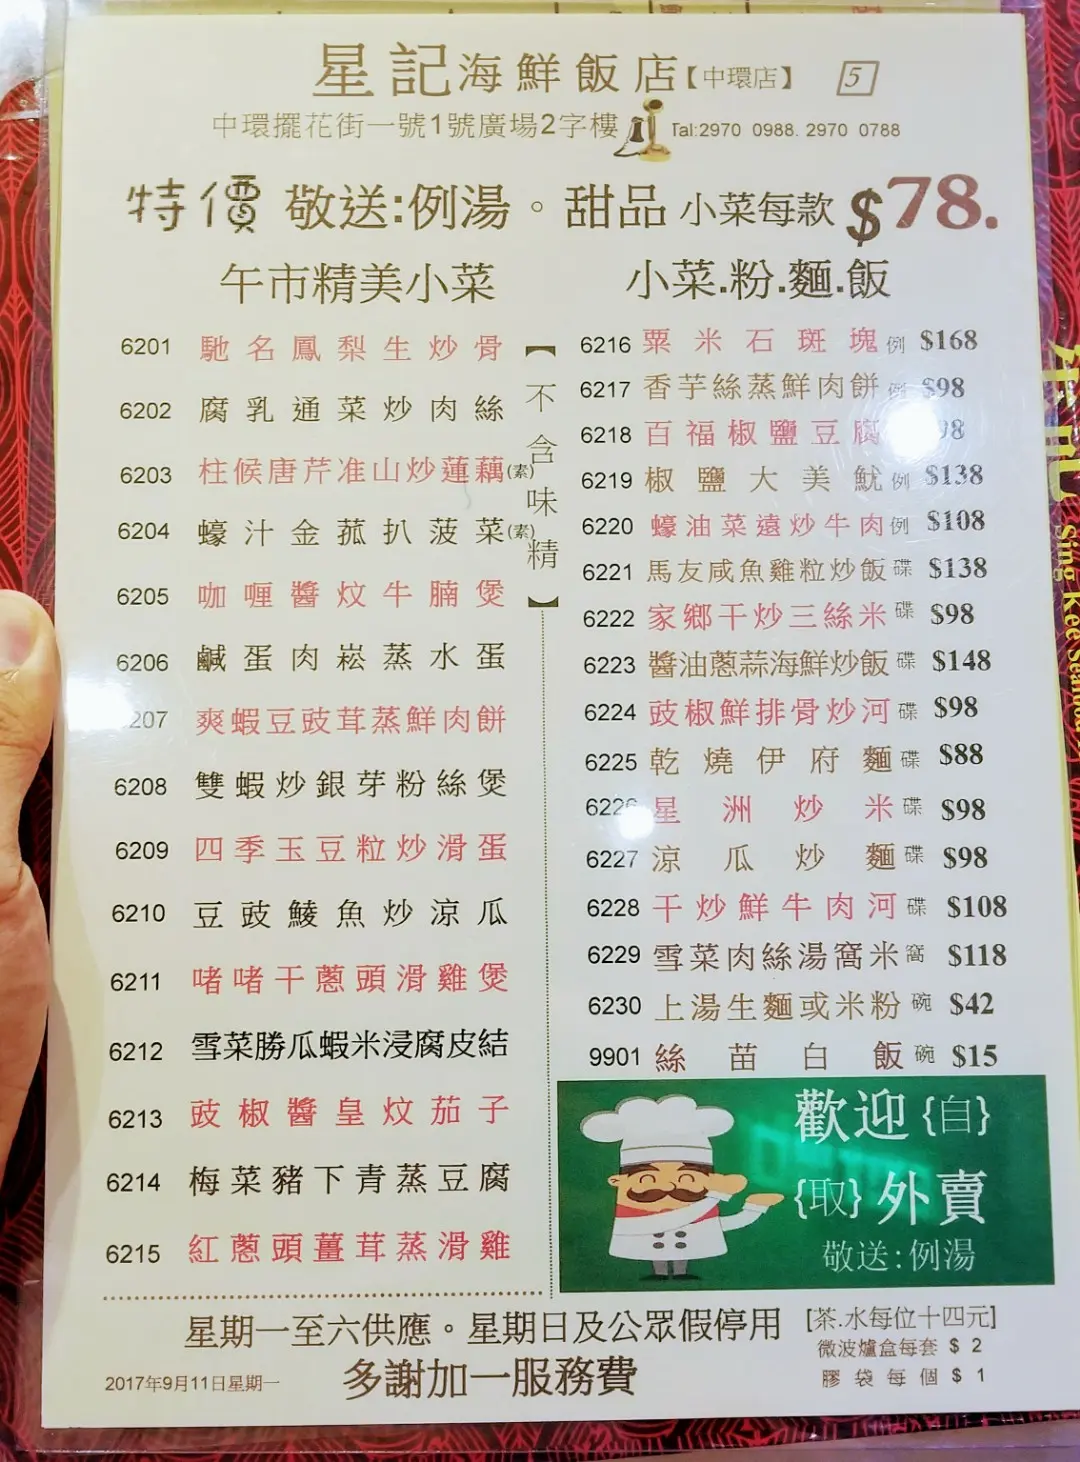 星記海鮮飯店【中環店】 5
中環擺花街一號1號廣場2字樓 Tal:2970 0988. 2970 0788
特價 敬送:例湯。甜品 小菜每款 $78.
午市精美小菜
【不含味精】
6201 馳名鳳梨生炒骨
6202 腐乳通菜炒肉絲
6203 柱候唐芹准山炒蓮藕(素)
6204 蠔汁金菰扒菠菜(素)
6205 咖喱醬炆牛腩煲
6206 鹹蛋肉崧蒸水蛋
6207 爽蝦豆豉茸蒸鮮肉餅
6208 雙蝦炒銀芽粉絲煲
6209 四季玉豆粒炒滑蛋
6210 豆豉鯪魚炒涼瓜
6211 啫啫干蔥頭滑雞煲
6212 雪菜勝瓜蝦米浸腐皮結
6213 豉椒醬皇炆茄子
6214 梅菜豬下青蒸豆腐
6215 紅蔥頭薑茸蒸滑雞
小菜.粉.麵.飯
6216 粟米石斑塊 例 $168
6217 香芋絲蒸鮮肉餅 例 $98
6218 百福椒鹽豆腐
6219 椒鹽大美魷 例 $138
6220 蠔油菜遠炒牛肉 例 $108
6221 馬友咸魚雞粒炒飯 碟 $138
6222 家鄉干炒三絲米 碟 $98
6223 醬油蔥蒜海鮮炒飯 碟 $148
6224 豉椒鮮排骨炒河 碟 $98
6225 乾燒伊府麵 碟 $88
6226 星洲炒米 碟 $98
6227 涼瓜炒麵 碟 $98
6228 干炒鮮牛肉河 碟 $108
6229 雪菜肉絲湯窩米 窩 $118
6230 上湯生麵或米粉 碗 $42
9901 絲苗白飯 碗 $15
歡迎{自}
{取}外賣
敬送:例湯
星期一至六供應。星期日及公眾假停用
多謝加一服務費
2017年9月11日星期一
[茶.水每位十四元]
微波爐盒每套 $ 2
膠袋每個 $ 1
星記 Sing Kee